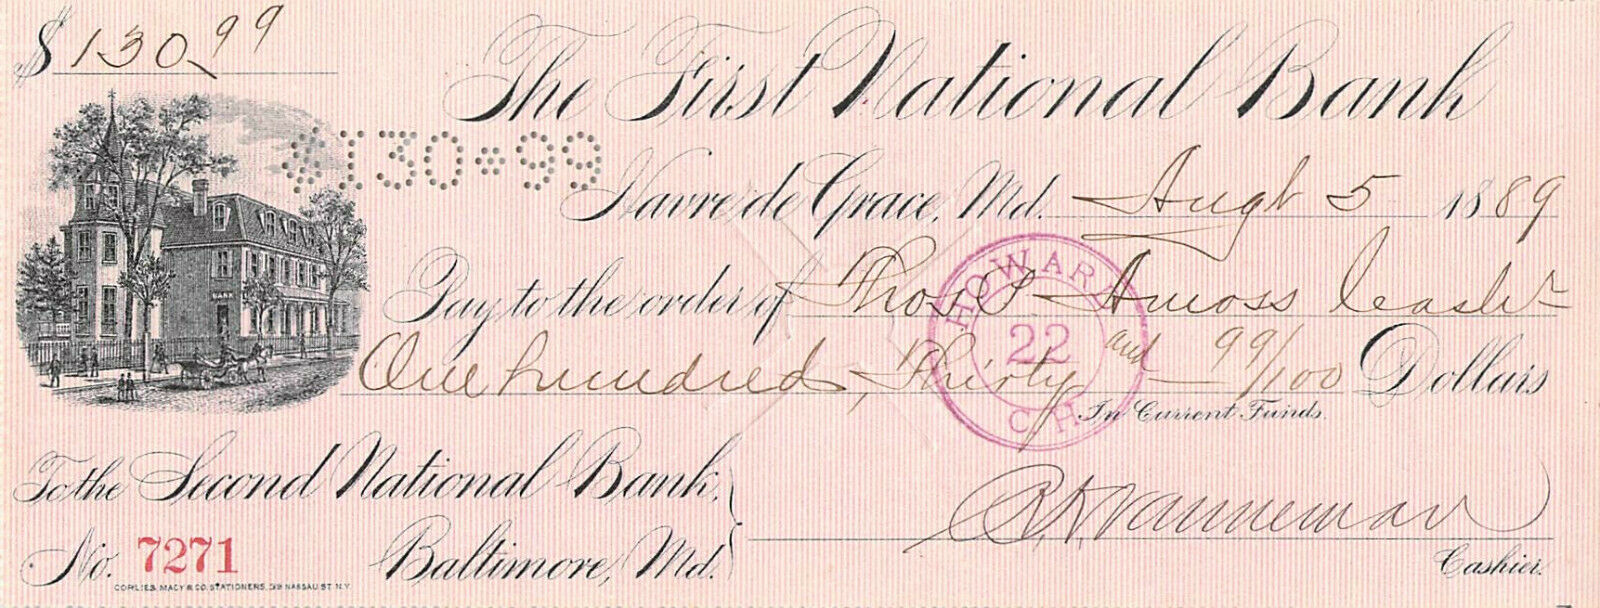 $130.99
The First National Bank
$130*99
Havre de Grace, Md. Augt 5 1889
Pay to the order of Thos. C. Amoss Cashr
One hundred, Thirty and 99/100 Dollars
In Current Funds.
HOWARD
22
C.H.
To the Second National Bank,
Baltimore, Md.
No. 7271
R. K. Vanneman
Cashier.
BANK
CORLIES, MACY & CO. STATIONERS, 39 NASSAU ST. N.Y.